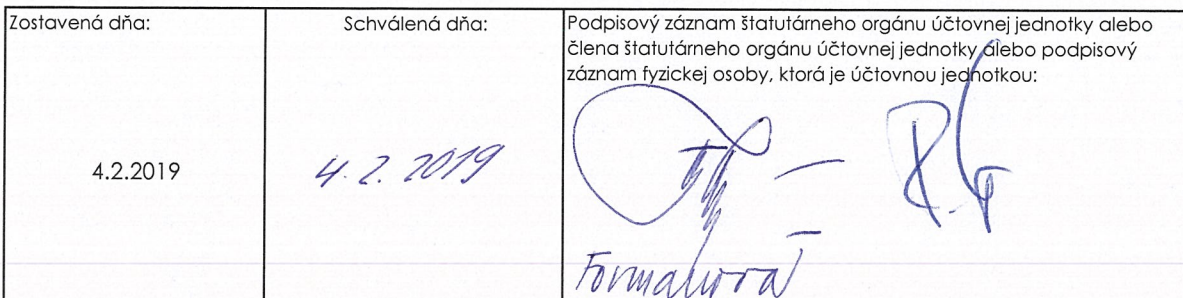 Zostavená dňa:
Schválená dňa:
Podpisový záznam štatutárneho orgánu účtovnej jednotky alebo
člena štatutárneho orgánu účtovnej jednotky alebo podpisový
záznam fyzickej osoby, ktorá je účtovnou jednotkou:
4.2.2019
4.2.2019